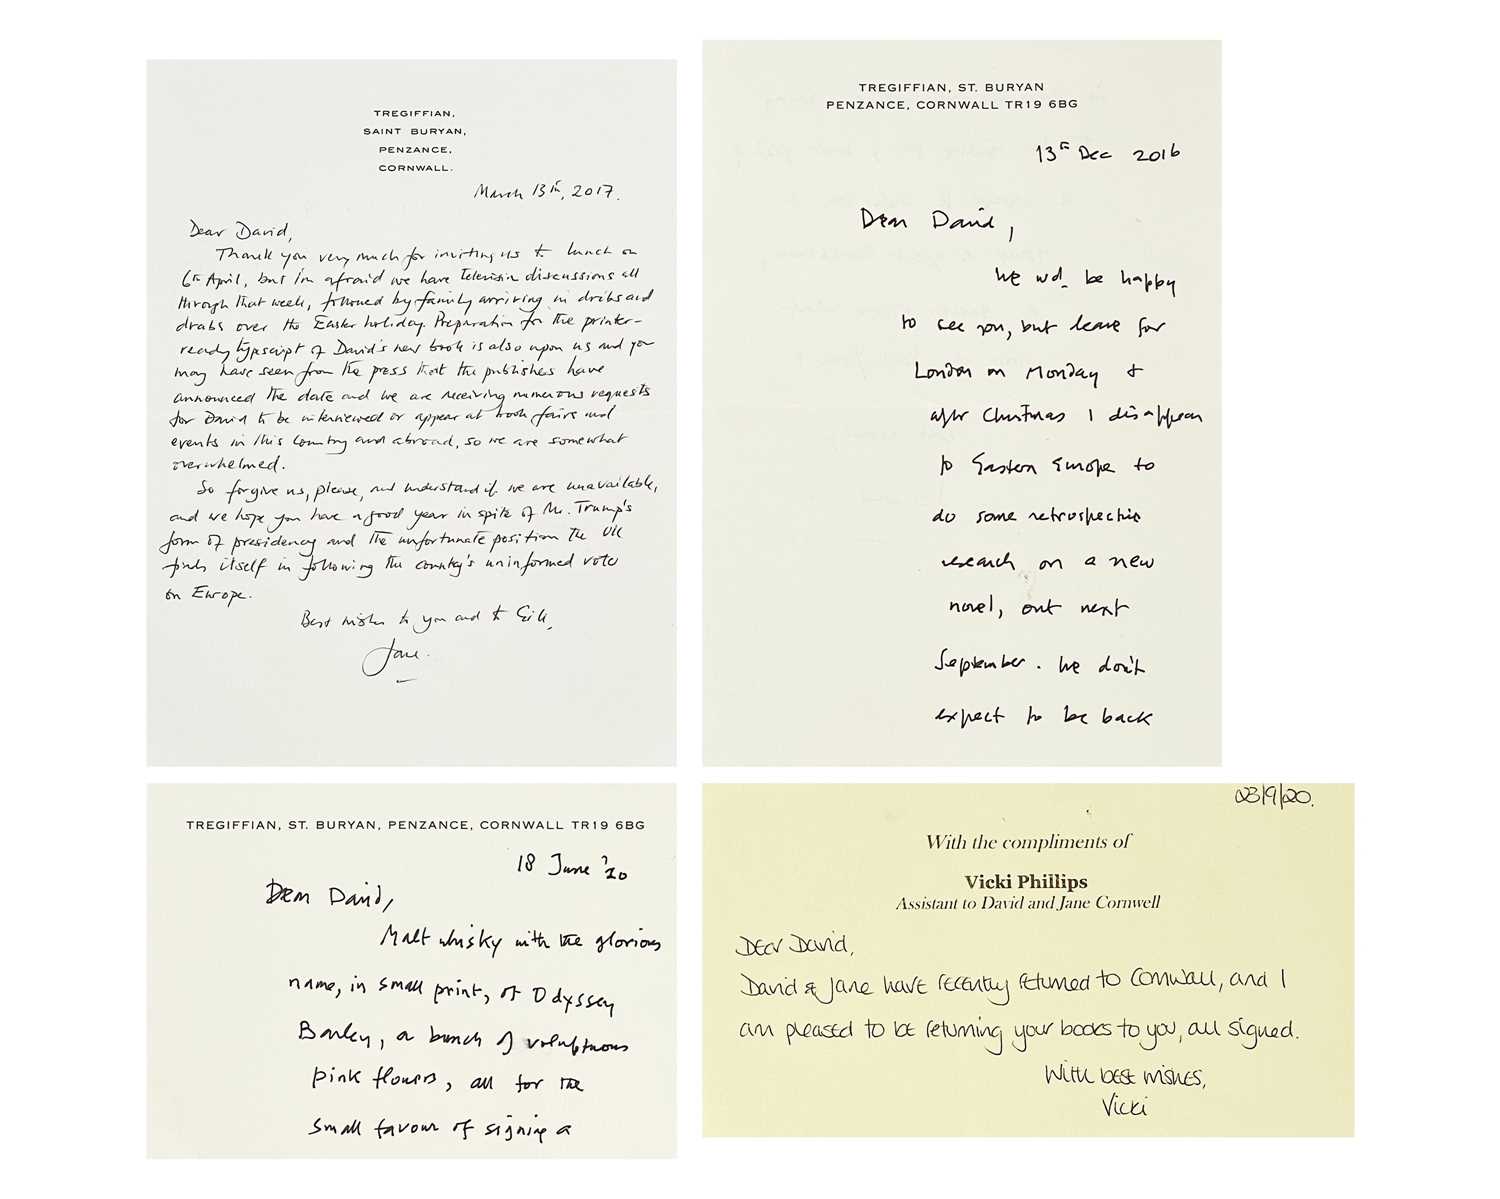 TREGIFFIAN,
SAINT BURYAN,
PENZANCE,
CORNWALL.
March 13th, 2017.
Dear David,
Thank you very much for inviting us to lunch on
6th April, but I'm afraid we have television discussions all
through that week, followed by family arriving in dribs and
drabs over the Easter holiday. Preparation for the printer-
ready typescript of David's new book is also upon us and you
may have seen from the press that the publishers have
announced the date and we are receiving numerous requests
for David to be interviewed or appear at book fairs and
events in this country and abroad, so we are somewhat
overwhelmed.
So forgive us, please, and understand if we are unavailable,
and we hope you have a good year in spite of Mr. Trump's
form of presidency and the unfortunate position the UK
finds itself in following the country's uninformed vote
on Europe.
Best wishes to you and to Gill,
Jane.
TREGIFFIAN, ST. BURYAN
PENZANCE, CORNWALL TR19 6BG
13th Dec 2016
Dear David,
We wd. be happy
to see you, but leave for
London on Monday &
after Christmas I disappear
to Eastern Europe to
do some retrospective
research on a new
novel, out next
September. We don't
expect to be back
TREGIFFIAN, ST. BURYAN, PENZANCE, CORNWALL TR19 6BG
18 June '20
Dear David,
Malt whisky with the glorious
name, in small print, of Odyssey
Barley, a bunch of voluptuous
pink flowers, all for the
small favour of signing a
23/9/20.
With the compliments of
Vicki Phillips
Assistant to David and Jane Cornwell
Dear David,
David & Jane have recently returned to Cornwall, and I
am pleased to be returning your books to you, all signed.
With best wishes,
Vicki